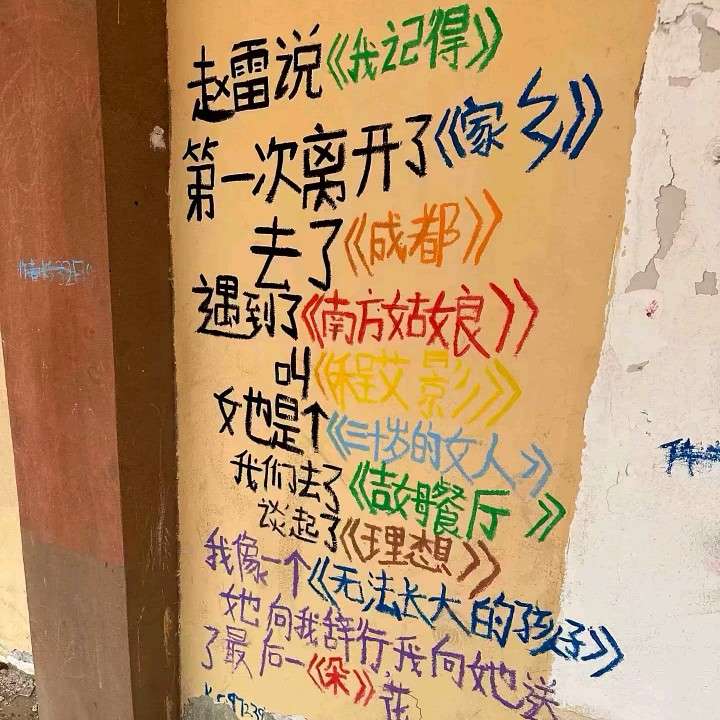 赵雷说《我记得》
第一次离开了《家乡》
去了《成都》
遇到了《南方姑娘》
叫《程艾影》
她是个《三十岁的女人》
我们去了《鼓楼餐厅》
谈起了《理想》
我像一个《无法长大的孩子》
她向我辞行我向她送
了最后一《朵》花